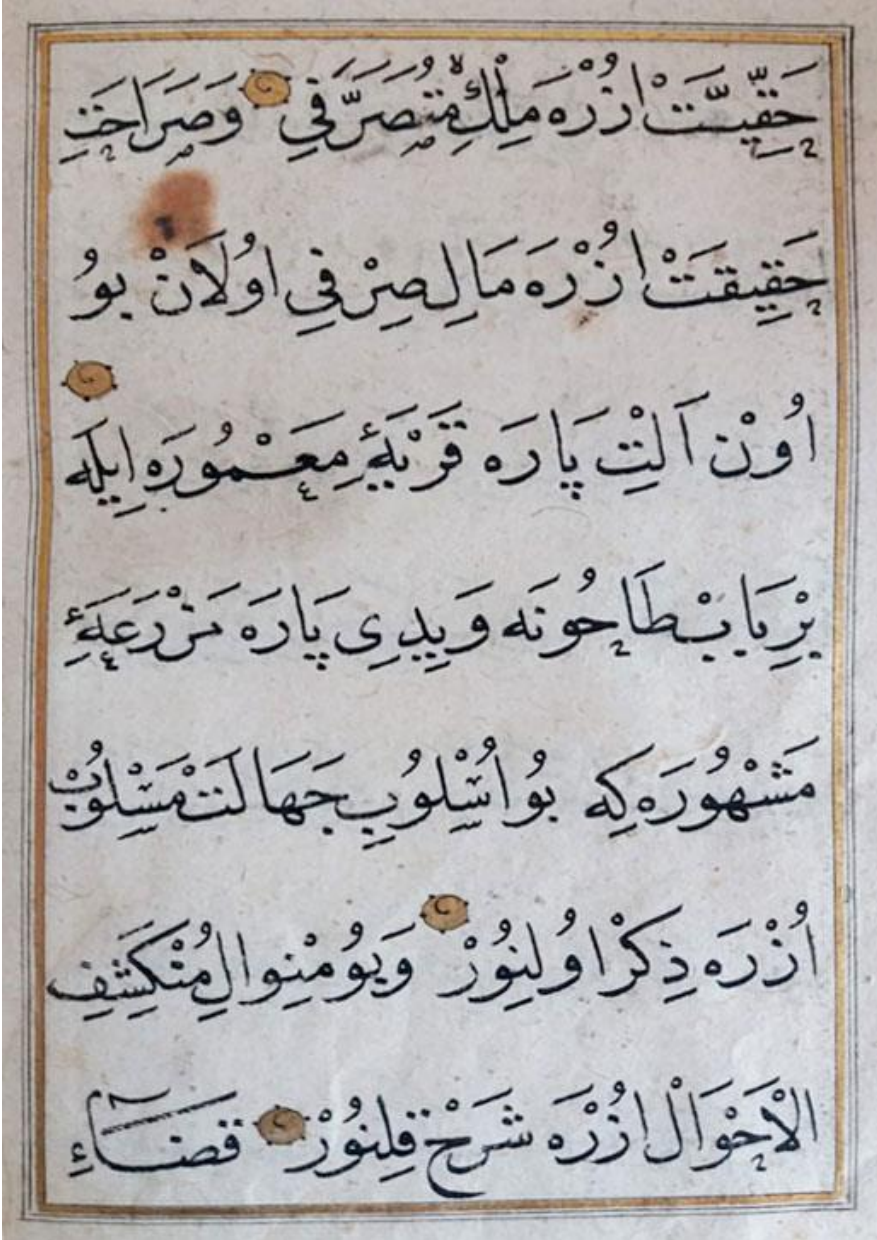 حَقِّيَّتْ اُزْرَه مَلِكِ مُتَصَرَّفِي وَصَرَاحَتِ
حَقِيقَتْ اُزْرَه مَالِ صِرْفِي اُولَانْ بُو
اُونْ آلْتِ پَارَه قَرْيَهٔ مَعْمُورَه اِيلَه
بِرْ بَابْ طَاحُونَه وَيِدِي پَارَه مَزْرَعَهٔ
مَشْهُورَه كِه بُو اُسْلُوبِ جَهَالَتْ مَسْلُوبْ
اُزْرَه ذِكْرْ اُولِنُورْ وَبُو مِنْوَالِ مُنْكَشِفِ
الْاَحْوَالْ اُزْرَه شَرْحْ قِلِنُورْ قَضَاءِ